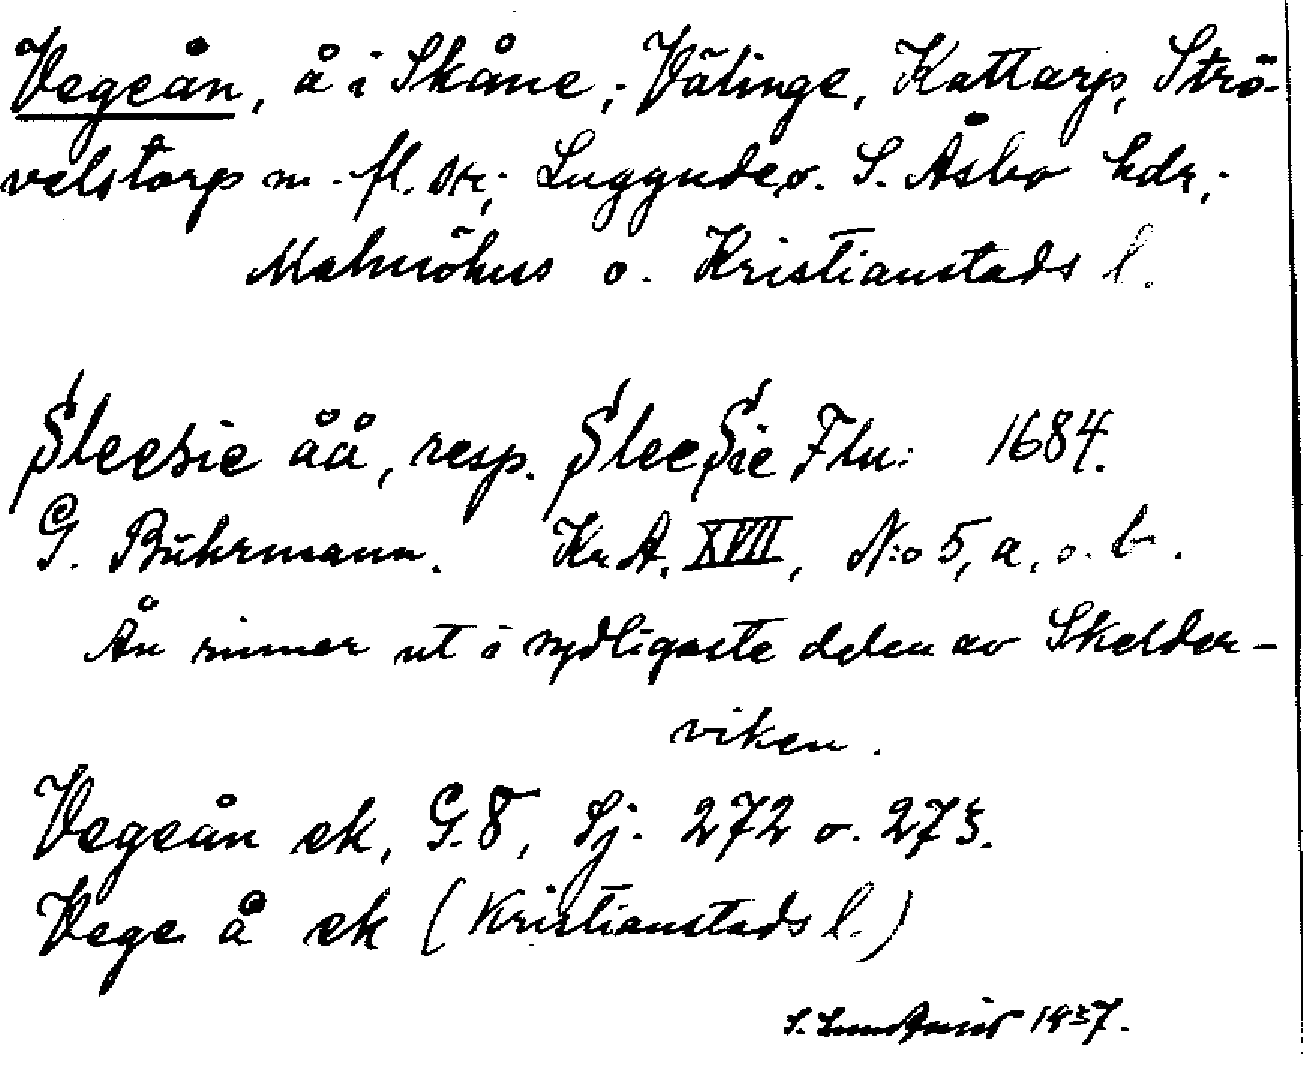 Vegeån, å i Skåne,; Välinge, Kattarp, Strö-
velstorp m. fl. str,; Luggude o. S. Åsbo hdr,;
Malmöhus o. Kristianstads l.
Sleesie åå, resp. SleeSie Flu: 1684.
G. Buhrmann. Kr. A. XVII, N:o 5, a, o. b.
Ån rinner ut i sydligaste delen av Skelder-
viken.
Vegeån ek, G. 8, Sj. 272 o. 273.
Vege å ek (Kristianstads l.)
S. Lundqvist 1937.